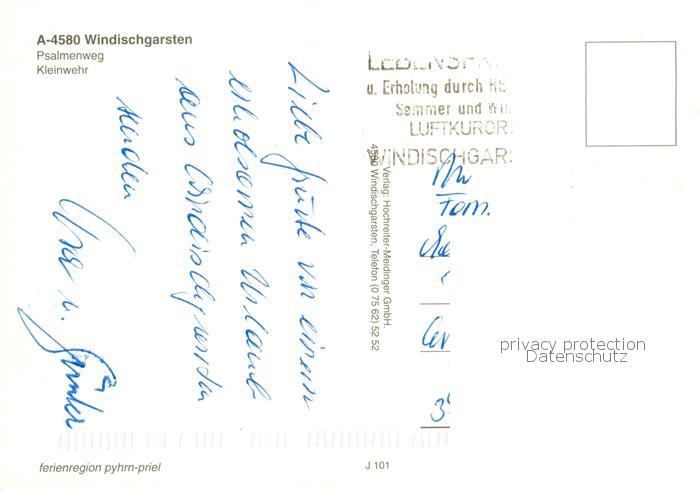 A-4580 Windischgarsten
Psalmenweg
Kleinwehr
Liebe Grüße von einem
erholsamen Urlaub
aus Windischgarsten
senden
u. Günter
LEBENSFR
u. Erholung durch HE
Sommer und Win
LUFTKUROR
WINDISCHGARS
Verlag: Hochreiter-Meidinger GmbH.
4580 Windischgarsten, Telefon (0 75 62) 52 52
An
Fam.
privacy protection
Datenschutz
ferienregion pyhrn-priel
J 101